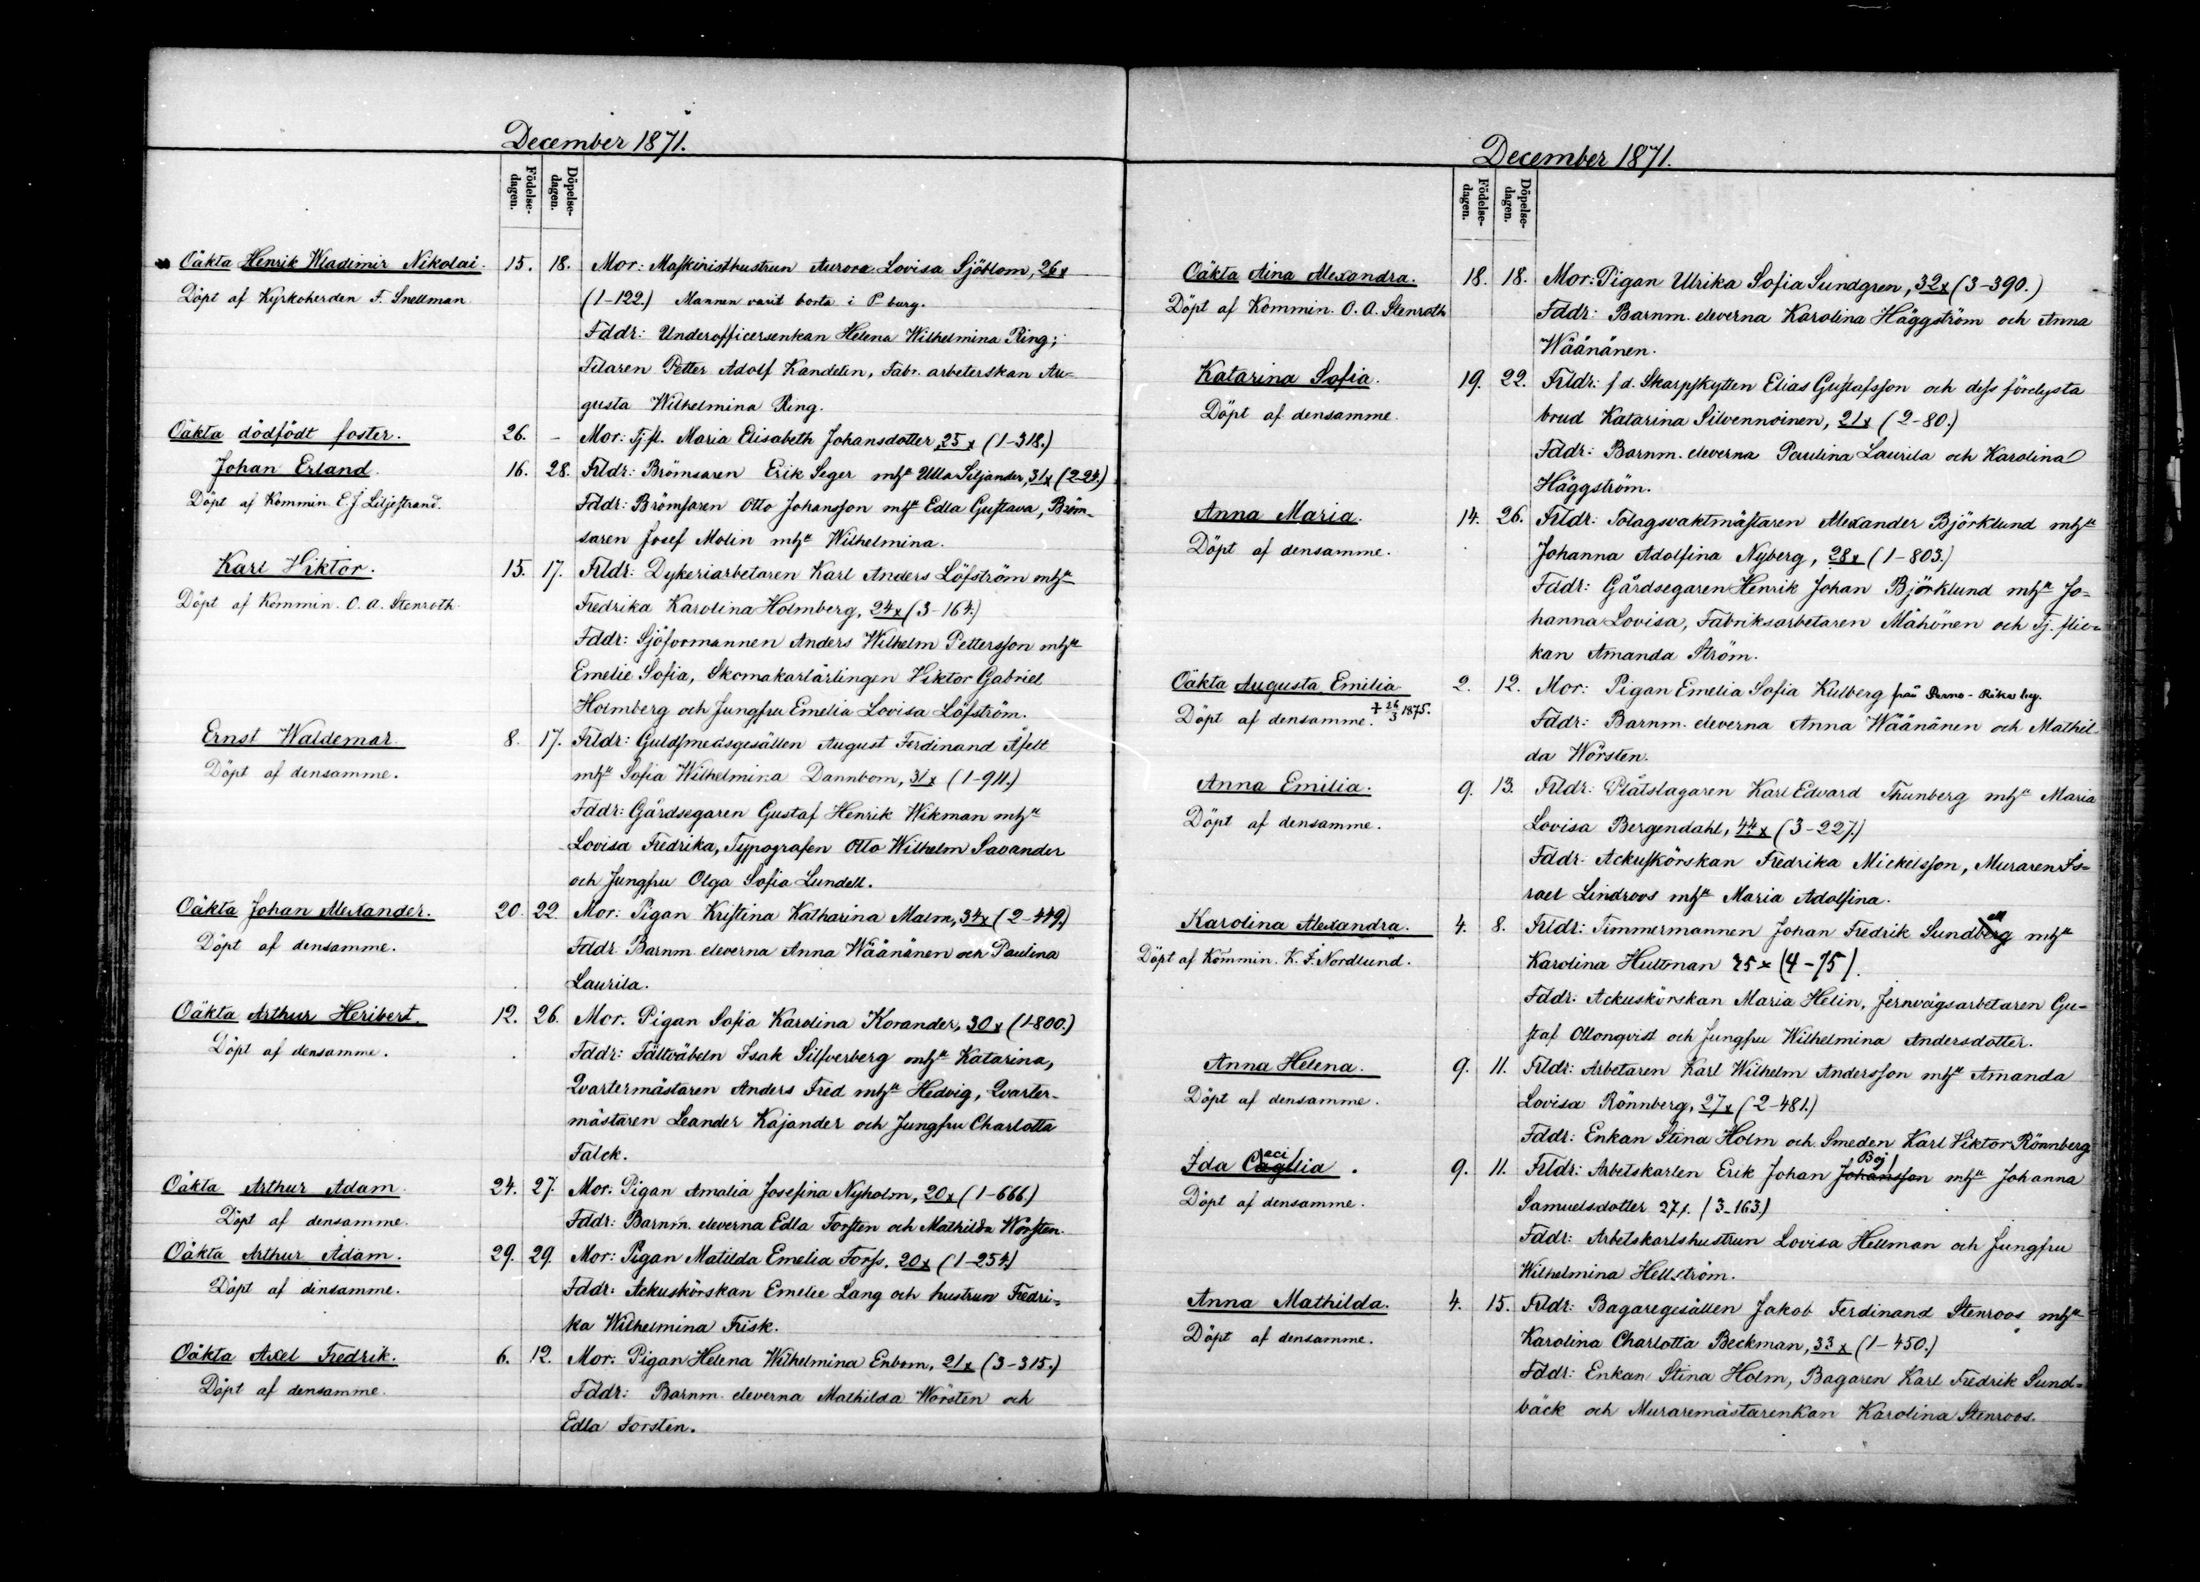 December 1871.
Födelse-
dagen.
Döpelse-
dagen.
Oäkta Henrik Wladimir Nikolai. 15. 18. Mor: Maskinisthustrun Aurora Lovisa Sjöblom, 26 x
Döpt af Kyrkoherden F. Snellman (1-122.) Mannen varit borta i P burg.
Fddr: Underofficersenkan Helena Wilhelmina Ring;
Filaren Petter Adolf Kandelin, Fabr. arbeterskan Au-
gusta Wilhelmina Ring.
Oäkta dödfödt foster. 26. - Mor: Tj.fl. Maria Elisabeth Johansdotter, 25 x (1-318.)
Johan Erland. 16. 28. Frldr: Brömsaren Erik Seger mhu Ulla Siljander, 31 x (2-24.)
Döpt af Kommin. E. J. Liljestrand. Fddr: Brömsaren Otto Johansson mhu Edla Gustava, Bröm-
saren Josef Molin mhu Wilhelmina.
Karl Viktor. 15. 17. Frldr: Dykeriarbetaren Karl Anders Löfström mhu
Döpt af Kommin. O. A. Stenroth. Fredrika Karolina Holmberg, 24 x (3-164.)
Fddr: Sjöformannen Anders Wilhelm Pettersson mhu
Emelie Sofia, Skomakarlärlingen Viktor Gabriel
Holmberg och Jungfru Emelia Lovisa Löfström.
Ernst Waldemar. 8. 17. Frldr: Guldsmedsgesällen August Ferdinand Åfelt
Döpt af densamme. mhu Sofia Wilhelmina Dannbom, 31 x (1-911.)
Fddr: Gårdsegaren Gustaf Henrik Wikman mhu
Lovisa Fredrika, Typografen Otto Wilhelm Savander
och Jungfru Olga Sofia Lundell.
Oäkta Johan Alexander. 20. 22. Mor: Pigan Kristina Katharina Malm, 34 x (2-449.)
Döpt af densamme. Fddr: Barnm. eleverna Anna Wäänänen och Paulina
Laurila.
Oäkta Arthur Heribert. 12. 26. Mor. Pigan Sofia Karolina Korander, 30 x (1-800.)
Döpt af densamme. Fddr: Fältväbeln Isak Silfverberg mhu Katarina,
Qvartermästaren Anders Fred mhu Hedvig, Qvarter-
mästaren Leander Kajander och Jungfru Charlotta
Falck.
Oäkta Arthur Adam. 24. 27. Mor: Pigan Amalia Josefina Nyholm, 20 x (1-666.)
Döpt af densamme. Fddr: Barnm. eleverna Edla Forsten och Mathilda Worsten.
Oäkta Arthur Adam. 29. 29. Mor: Pigan Matilda Emelia Forss, 20 x (1-254.)
Döpt af densamme. Fddr: Ackuskörskan Emelie Lang och hustrun Fredri-
ka Wilhelmina Frisk.
Oäkta Axel Fredrik. 6. 12. Mor: Pigan Helena Wilhelmina Enbom, 21 x (3-315.)
Döpt af densamme. Fddr: Barnm. eleverna Mathilda Wörsten och
Edla Forsten.
December 1871.
Födelse-
dagen.
Döpelse-
dagen.
Oäkta Aina Alexandra. 18. 18. Mor: Pigan Ulrika Sofia Sundgren, 32 x (3-390.)
Döpt af Kommin. O. A. Stenroth Fddr: Barnm. eleverna Karolina Häggström och Anna
Wäänänen.
Katarina Sofia. 19. 22. Frldr: f d. Skarpskytten Elias Gustafsson och dess förelysta
Döpt af densamme. brud Katarina Silvennoinen, 21 x (2-80.)
Fddr: Barnm. eleverna Paulina Laurila och Karolina
Häggström.
Anna Maria. 14. 26. Frldr: Tolagsvaktmästaren Alexander Björklund mhu
Döpt af densamme. Johanna Adolfina Nyberg, 28 x (1-803.)
Fddr: Gårdsegaren Henrik Johan Björklund mhu Jo-
hanna Lovisa, Fabriksarbetaren Mähönen och Tj. flic-
kan Amanda Ström.
Oäkta Augusta Emilia. 2. 12. Mor: Pigan Emelia Sofia Kulberg från
Döpt af densamme. + 26/3 1875. Fddr: Barnm. eleverna Anna Wäänänen och Mathil-
da Wörsten.
Anna Emilia. 9. 13. Frldr: Plåtslagaren Karl Edvard Thunberg mhu Maria
Döpt af densamme. Lovisa Bergendahl, 44 x (3-227.)
Fddr: Ackuskörskan Fredrika Mickelsson, Muraren Is-
rael Lindroos mhu Maria Adolfina.
Karolina Alexandra. 4. 8. Frldr: Timmermannen Johan Fredrik Sundberg ell mhu
Döpt af Kommin. K. F. Nordlund. Karolina Hultman 25 x (4-75).
Fddr: Ackuskörskan Maria Helin, Jernvägsarbetaren Gu-
staf Ollonqvist och Jungfru Wilhelmina Andersdotter.
Anna Helena. 9. 11. Frldr: Arbetaren Karl Wilhelm Andersson mhu Amanda
Döpt af densamme. Lovisa Rönnberg, 27 x (2-481.)
Fddr: Enkan Stina Holm och Smeden Karl Viktor Rönnberg
Ida Cecilia. 9. 11. Frldr: Arbetskarlen Erik Johan Johansson Boj mhu Johanna
Döpt af densamme. Samuelsdotter 27 x. (3-163.)
Fddr: Arbetskarlshustrun Lovisa Hellman och Jungfru
Wilhelmina Hellström.
Anna Mathilda. 4. 15. Frldr: Bagaregesällen Jakob Ferdinand Stenroos mhu
Döpt af densamme. Karolina Charlotta Beckman, 33 x (1-450.)
Fddr: Enkan Stina Holm, Bagaren Karl Fredrik Sund-
bäck och Muraremästarenkan Karolina Stenroos.